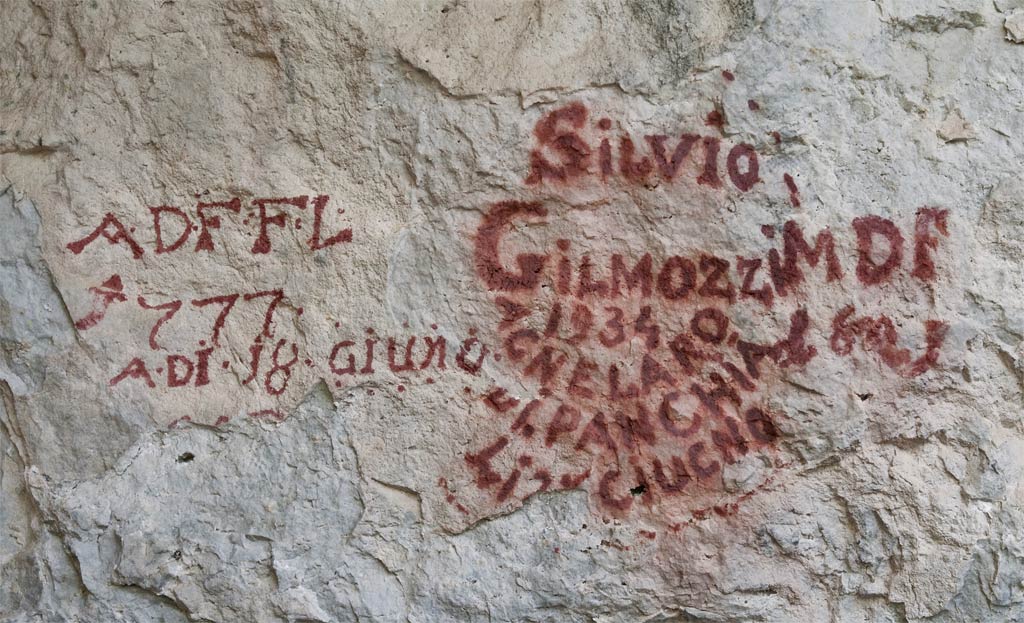 A·D·F·F·L·
1777
A·DI·18·GIUNO·
SILVIO
GILMOZZI M D F
1934
AGNELARO
PANCHIA
GIUGNO